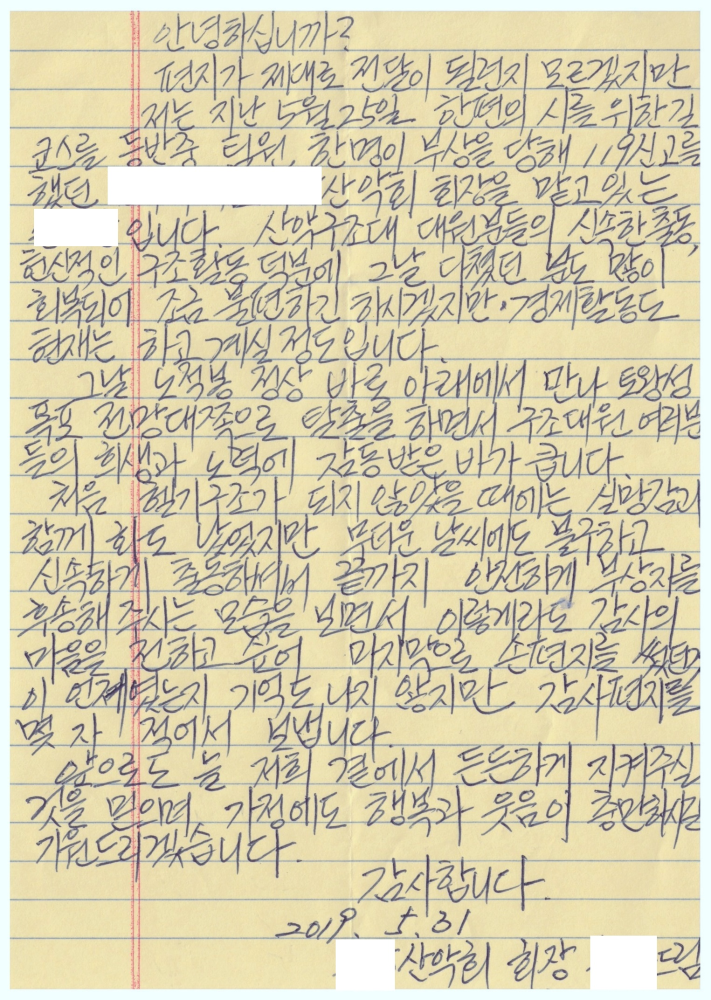 안녕하십니까?
편지가 제대로 전달이 될런지 모르겠지만
저는 지난 5월 25일 한편의 시를 위한 길
코스를 등반중 팀원 한명이 부상을 당해 119신고를
했던 산악회 회장을 맡고 있는
입니다. 산악구조대 대원분들의 신속한 출동,
헌신적인 구조활동 덕분에 그날 다쳤던 분도 많이
회복되어 조금 불편하긴 하시겠지만 경제활동도
현재는 하고 계실 정도입니다.
그날 노적봉 정상 바로 아래에서 만나 토왕성
폭포 전망대쪽으로 탈출을 하면서 구조대원 여러분
들의 희생과 노력에 감동받은 바가 큽니다.
처음 헬기구조가 되지 않았을 때에는 실망감과
함께 화도 났었지만 무더운 날씨에도 불구하고
신속하게 출동하셔서 끝까지 안전하게 부상자를
후송해 주시는 모습을 보면서 이렇게라도 감사의
마음을 전하고 싶어 마지막으로 손편지를 썼던게
이 언제였는지 기억도 나지 않지만 감사편지를
몇 자 적어서 보냅니다.
앞으로도 늘 저희 곁에서 든든하게 지켜주실
것을 믿으며 가정에도 행복과 웃음이 충만하시길
기원드리겠습니다.
감사합니다.
2019. 5. 31
산악회 회장 드림